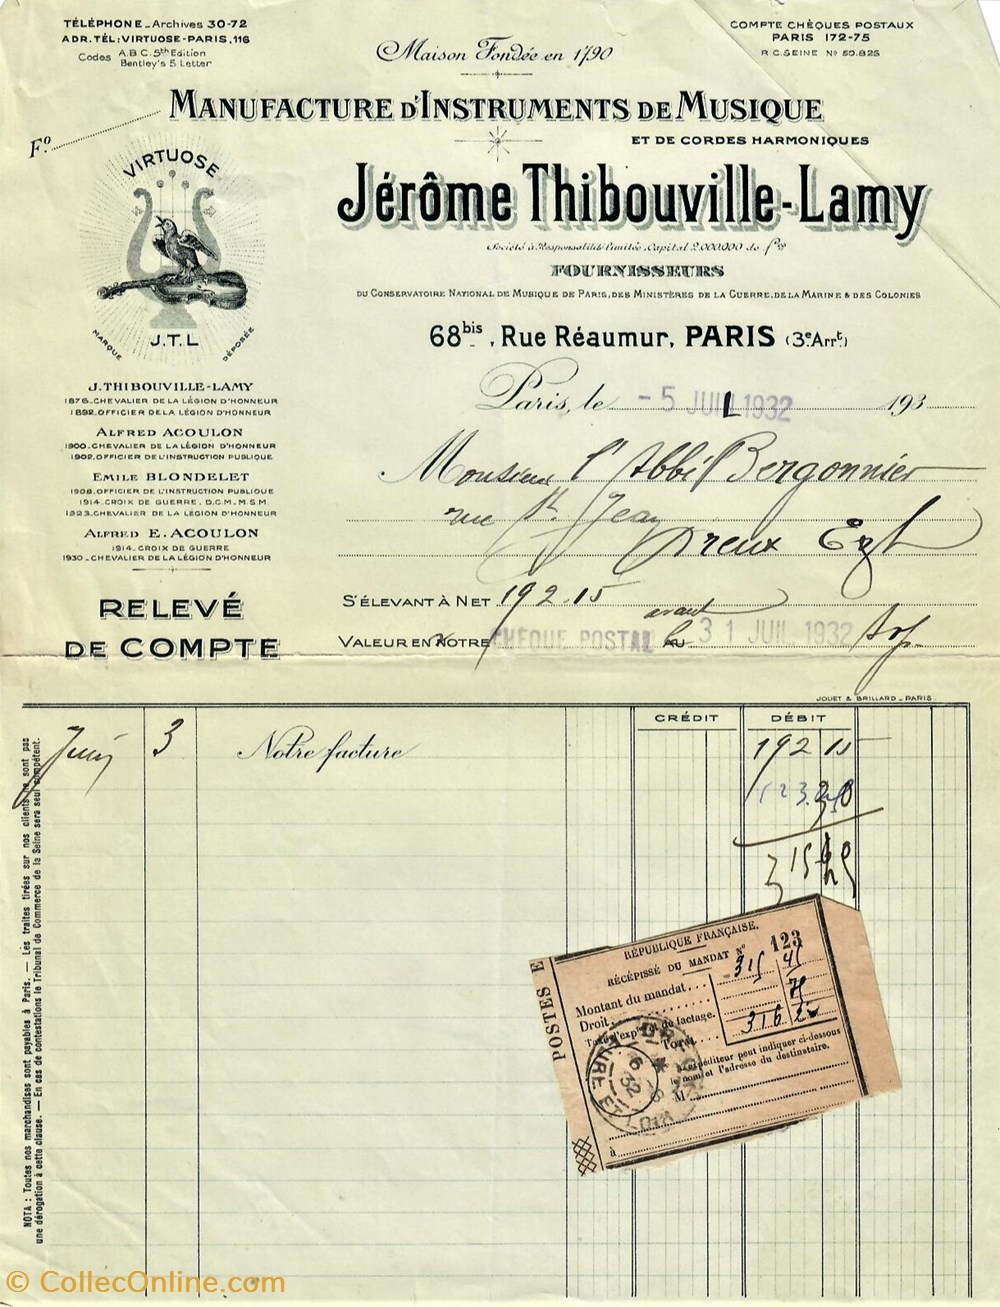 TÉLÉPHONE_Archives 30-72
ADR.TÉL:VIRTUOSE-PARIS,116
Codes A.B.C. 5th Edition
Bentley's 5 Letter
COMPTE CHÈQUES POSTAUX
PARIS 172-75
R.C. SEINE No 50.825
Maison Fondée en 1790
MANUFACTURE D'INSTRUMENTS DE MUSIQUE
ET DE CORDES HARMONIQUES
Fo.
VIRTUOSE
J.T.L
MARQUE DÉPOSÉE
Jérôme Thibouville-Lamy
Société à Responsabilité Limitée. Capital 2.000.000 de frs
FOURNISSEURS
DU CONSERVATOIRE NATIONAL DE MUSIQUE DE PARIS, DES MINISTÈRES DE LA GUERRE, DE LA MARINE & DES COLONIES
68bis, Rue Réaumur, PARIS (3e Arrt)
J. THIBOUVILLE-LAMY
1876_CHEVALIER DE LA LÉGION D'HONNEUR
1892_OFFICIER DE LA LÉGION D'HONNEUR
ALFRED ACOULON
1900_CHEVALIER DE LA LÉGION D'HONNEUR
1902_OFFICIER DE L'INSTRUCTION PUBLIQUE
EMILE BLONDELET
1908_OFFICIER DE L'INSTRUCTION PUBLIQUE
1914_CROIX DE GUERRE_D.C.M._M.S.M.
1923_CHEVALIER DE LA LÉGION D'HONNEUR
ALFRED E. ACOULON
1914_CROIX DE GUERRE
1930_CHEVALIER DE LA LÉGION D'HONNEUR
Paris, le - 5 JUIL 1932 193
Monsieur l'Abbé Bergonnier
rue St Jean
Dreux E&L
RELEVÉ
DE COMPTE
S'ÉLEVANT À NET 192.15
avant
VALEUR EN NOTRE CHÈQUE POSTAL AU le 31 JUIL 1932
JOUET & BRILLARD_PARIS.
CRÉDIT DÉBIT
Juin 3 Notre facture 192 15
123 30
315 45
NOTA : Toutes nos marchandises sont payables à Paris. — Les traites tirées sur nos clients ne sont pas
une dérogation à cette clause. — En cas de contestations le Tribunal de Commerce de la Seine sera seul compétent.
POSTES E
RÉPUBLIQUE FRANÇAISE.
RÉCÉPISSÉ DU MANDAT No 123
Montant du mandat... 315 45
Droit 75
Taxe d'expon et de factage.
TOTAL 316 20
L'expéditeur peut indiquer ci-dessous
le nom et l'adresse du destinataire.
M
à
DREUX
6-7 32
EURE ET LOIR
© CollecOnline.com